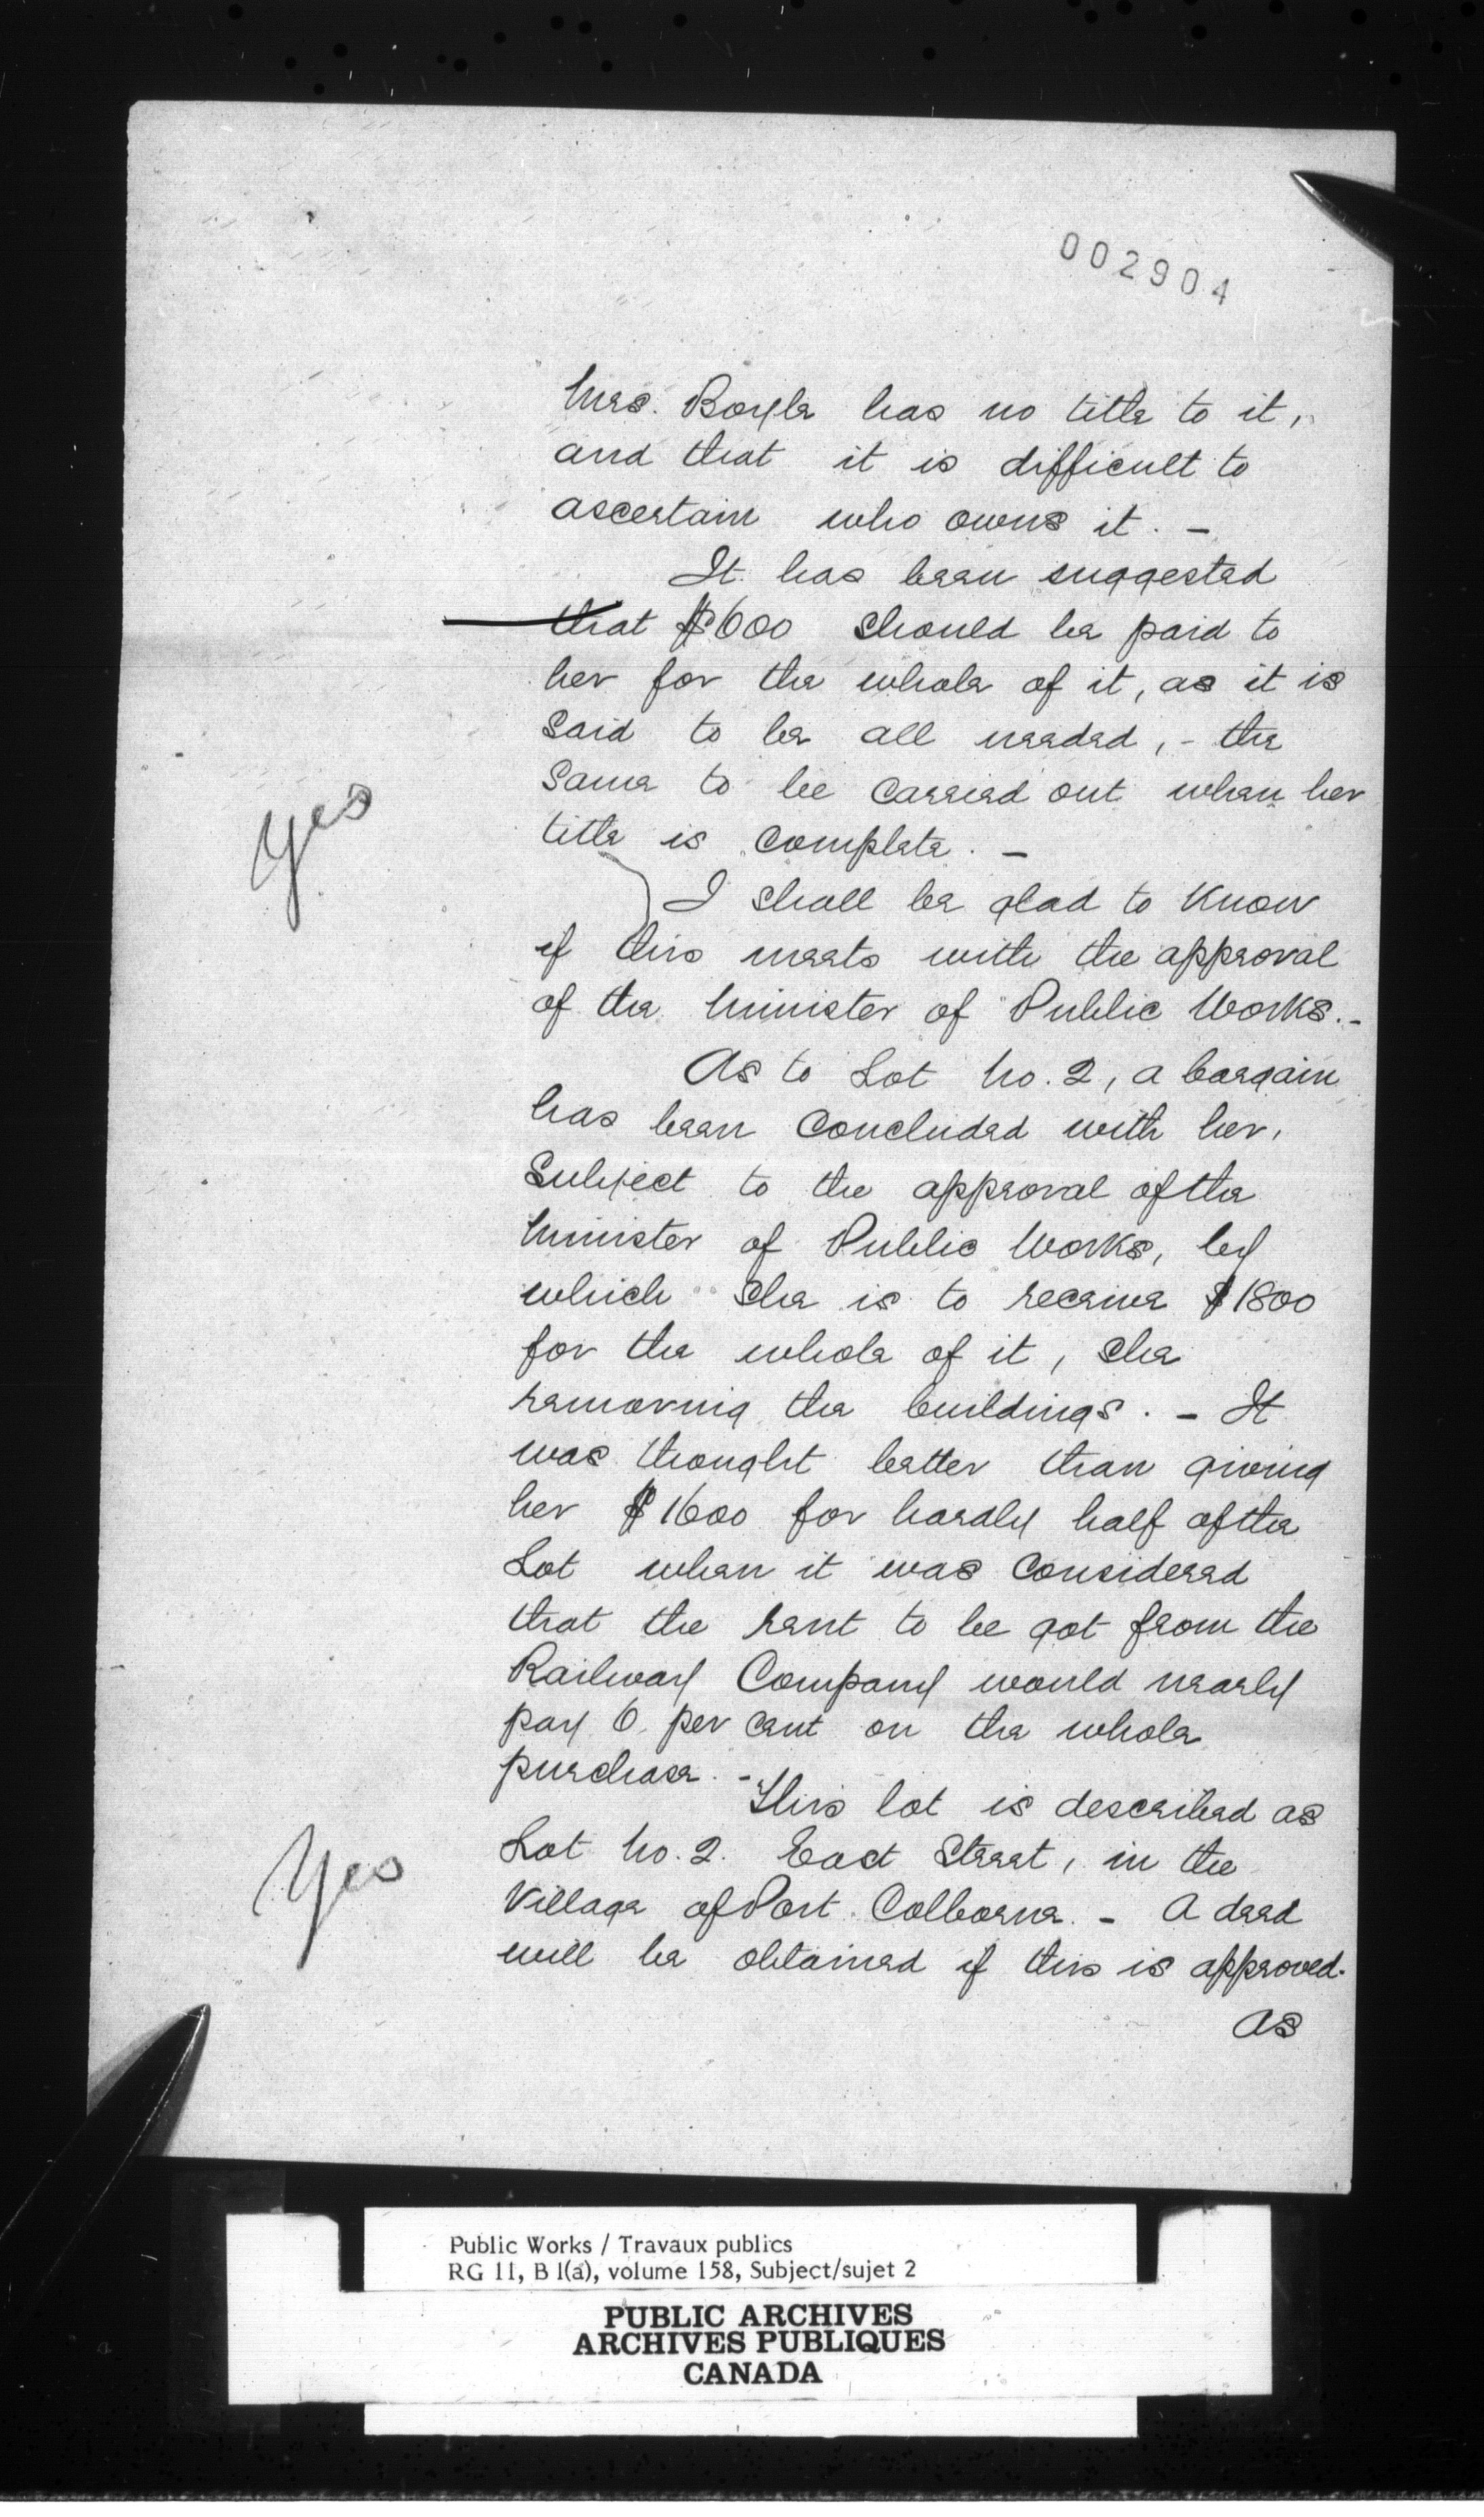 002904
Mrs. Boyle has no title to it,
and that it is difficult to
ascertain who owns it. -
It has been suggested
that $600 should be paid to
her for the whole of it, as it is
said to be all needed, - the
same to be carried out when her
title is complete. -
Yes
I shall be glad to know
if this meets with the approval
of the Minister of Public Works. -
As to Lot No. 2, a bargain
has been concluded with her,
subject to the approval of the
Minister of Public Works, by
which she is to receive $1800
for the whole of it, she
removing the buildings. - It
was thought better than giving
her $1600 for hardly half of the
Lot when it was considered
that the rent to be got from the
Railway Company would nearly
pay 6 per cent on the whole
purchase. -
This lot is described as
Lot No. 2. East Street, in the
Yes
Village of Port Colborne. - A deed
will be obtained if this is approved.
As
Public Works / Travaux publics
RG 11, B 1(a), volume 158, Subject/sujet 2
PUBLIC ARCHIVES
ARCHIVES PUBLIQUES
CANADA